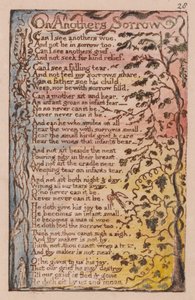 28
On Anothers Sorrow
Can I see anothers woe,
And not be in sorrow too.
Can I see anothers grief,
And not seek for kind relief.
Can I see a falling tear,
And not feel my sorrows share,
Can a father see his child,
Weep, nor be with sorrow fill'd.
Can a mother sit and hear,
An infant groan an infant fear
No no never can it be,
Never never can it be.
And can he who smiles on all
Hear the wren with sorrows small,
Hear the small birds grief & care
Hear the woes that infants bear
And not sit beside the nest
Pouring pity in their breast,
And not sit the cradle near
Weeping tear on infants tear.
And not sit both night & day,
Wiping all our tears away.
O! no never can it be.
Never never can it be.
He doth give his joy to all.
He becomes an infant small.
He becomes a man of woe
He doth feel the sorrow too.
Think not, thou canst sigh a sigh,
And thy maker is not by.
Think not, thou canst weep a tear,
And thy maker is not near.
O! he gives to us his joy,
That our grief he may destroy
Till our grief is fled & gone
He doth sit by us and moan